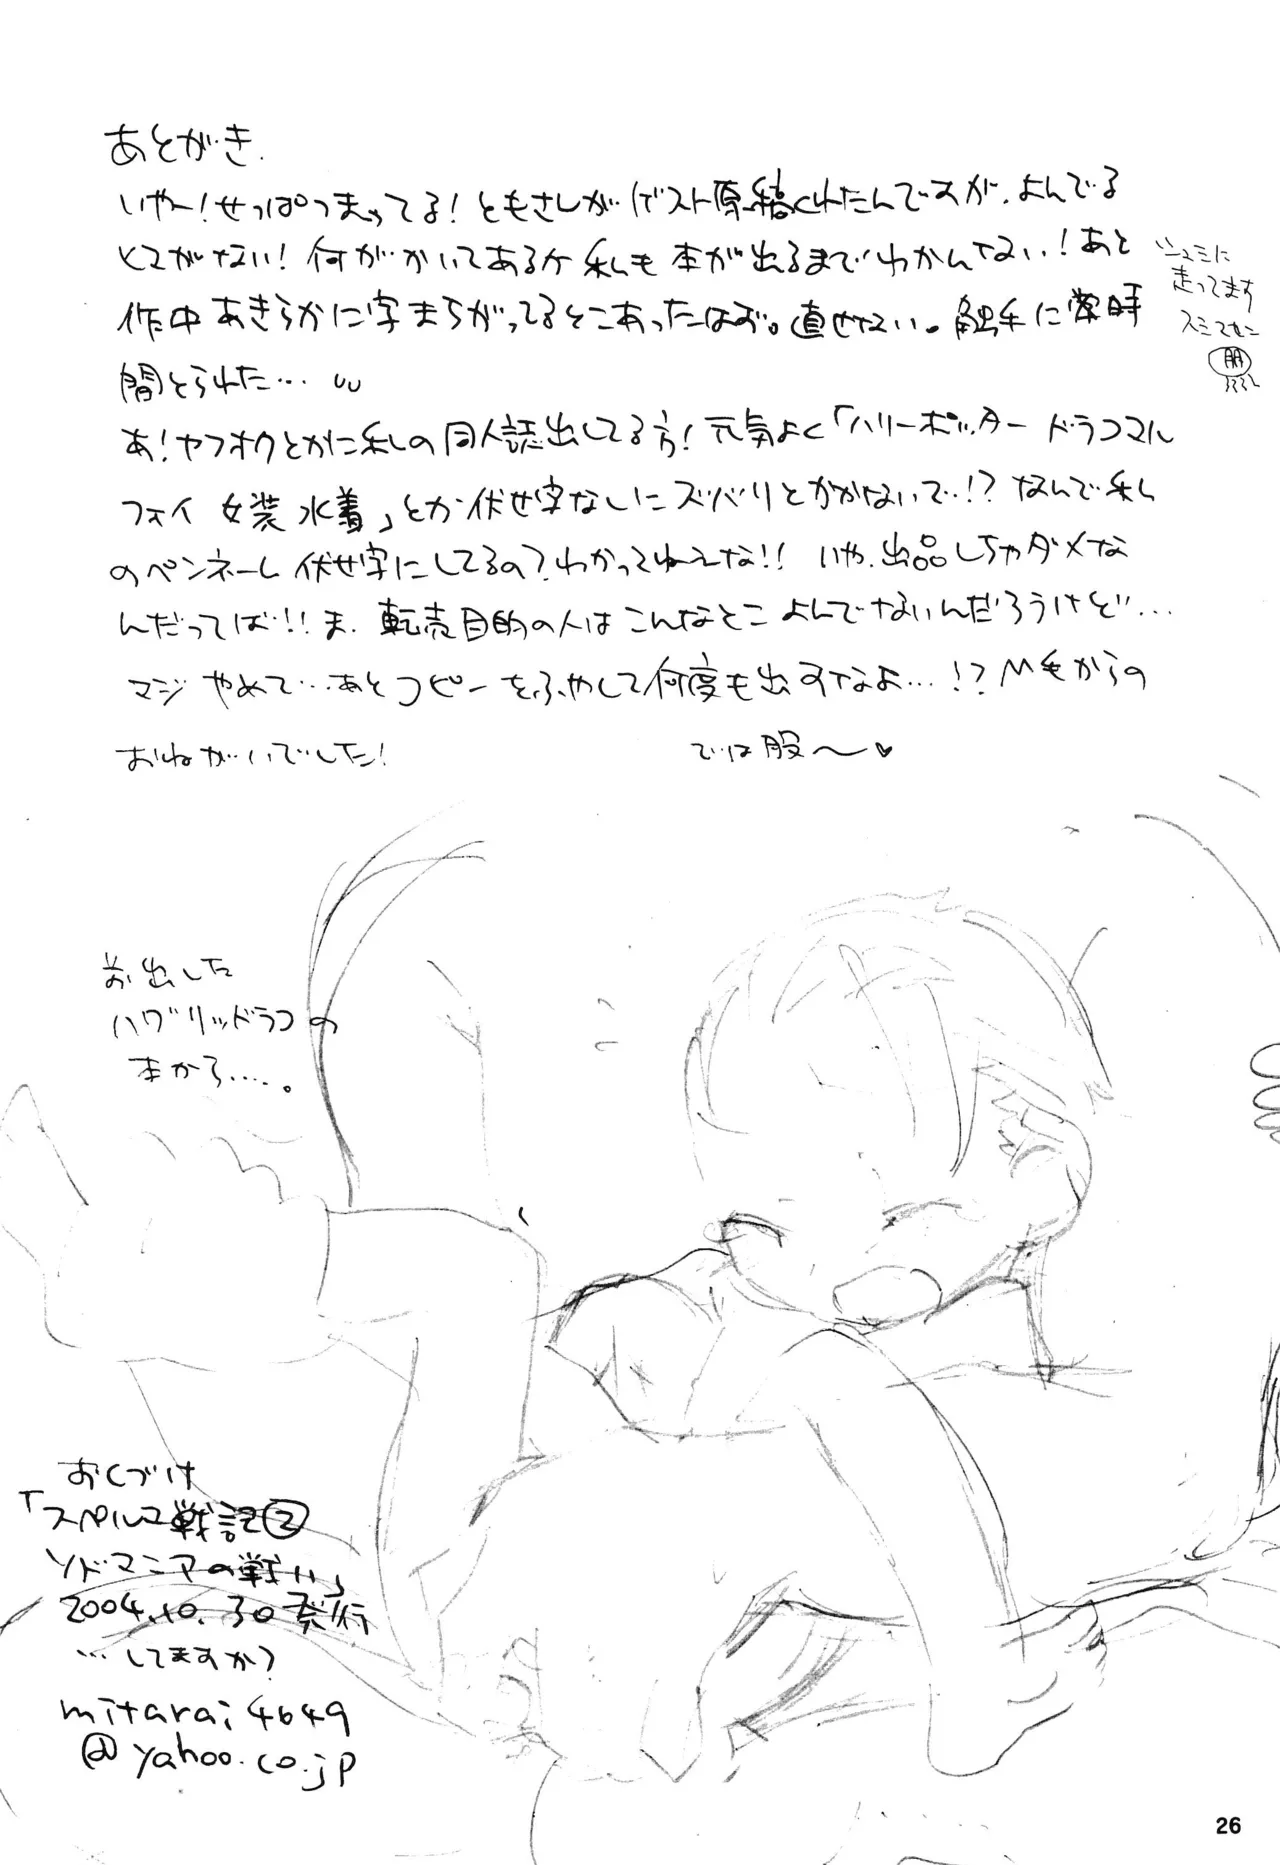 あとがき.
いやー!せっぱつまってる!ともさしがゲスト原稿くれたんですが、よんでる
ヒマがない!何がかいてあるか私も本が出るまでわかんない!あと
作中あきらかに字まちがってるとこあったはず。直せない。触手に常時
間とられた…
シュミに
走ってます
スミマセン
あ!ヤフオクとかに私の同人誌出してる方!元気よく「ハリーポッター ドラコマル
フォイ 女装 水着」とか伏せ字なしにズバリとかかないで!?なんで私
のペンネーム伏せ字にしてるの?わかってねえな!!いや、出品しちゃダメな
んだってば!!ま、転売目的の人はこんなとこよんでないんだろうけど…
マジやめて…あとコピーをふやして何度も出すなよ…!?M毛からの
おねがいでした!
では股〜♥
お出した
ハグリッドラコの
本から….。
おくづけ
「スペルマ戦記②
ソドマニアの戦い」
2004.10.30発行
…してますか?
mitarai4649
@yahoo.co.jp
26